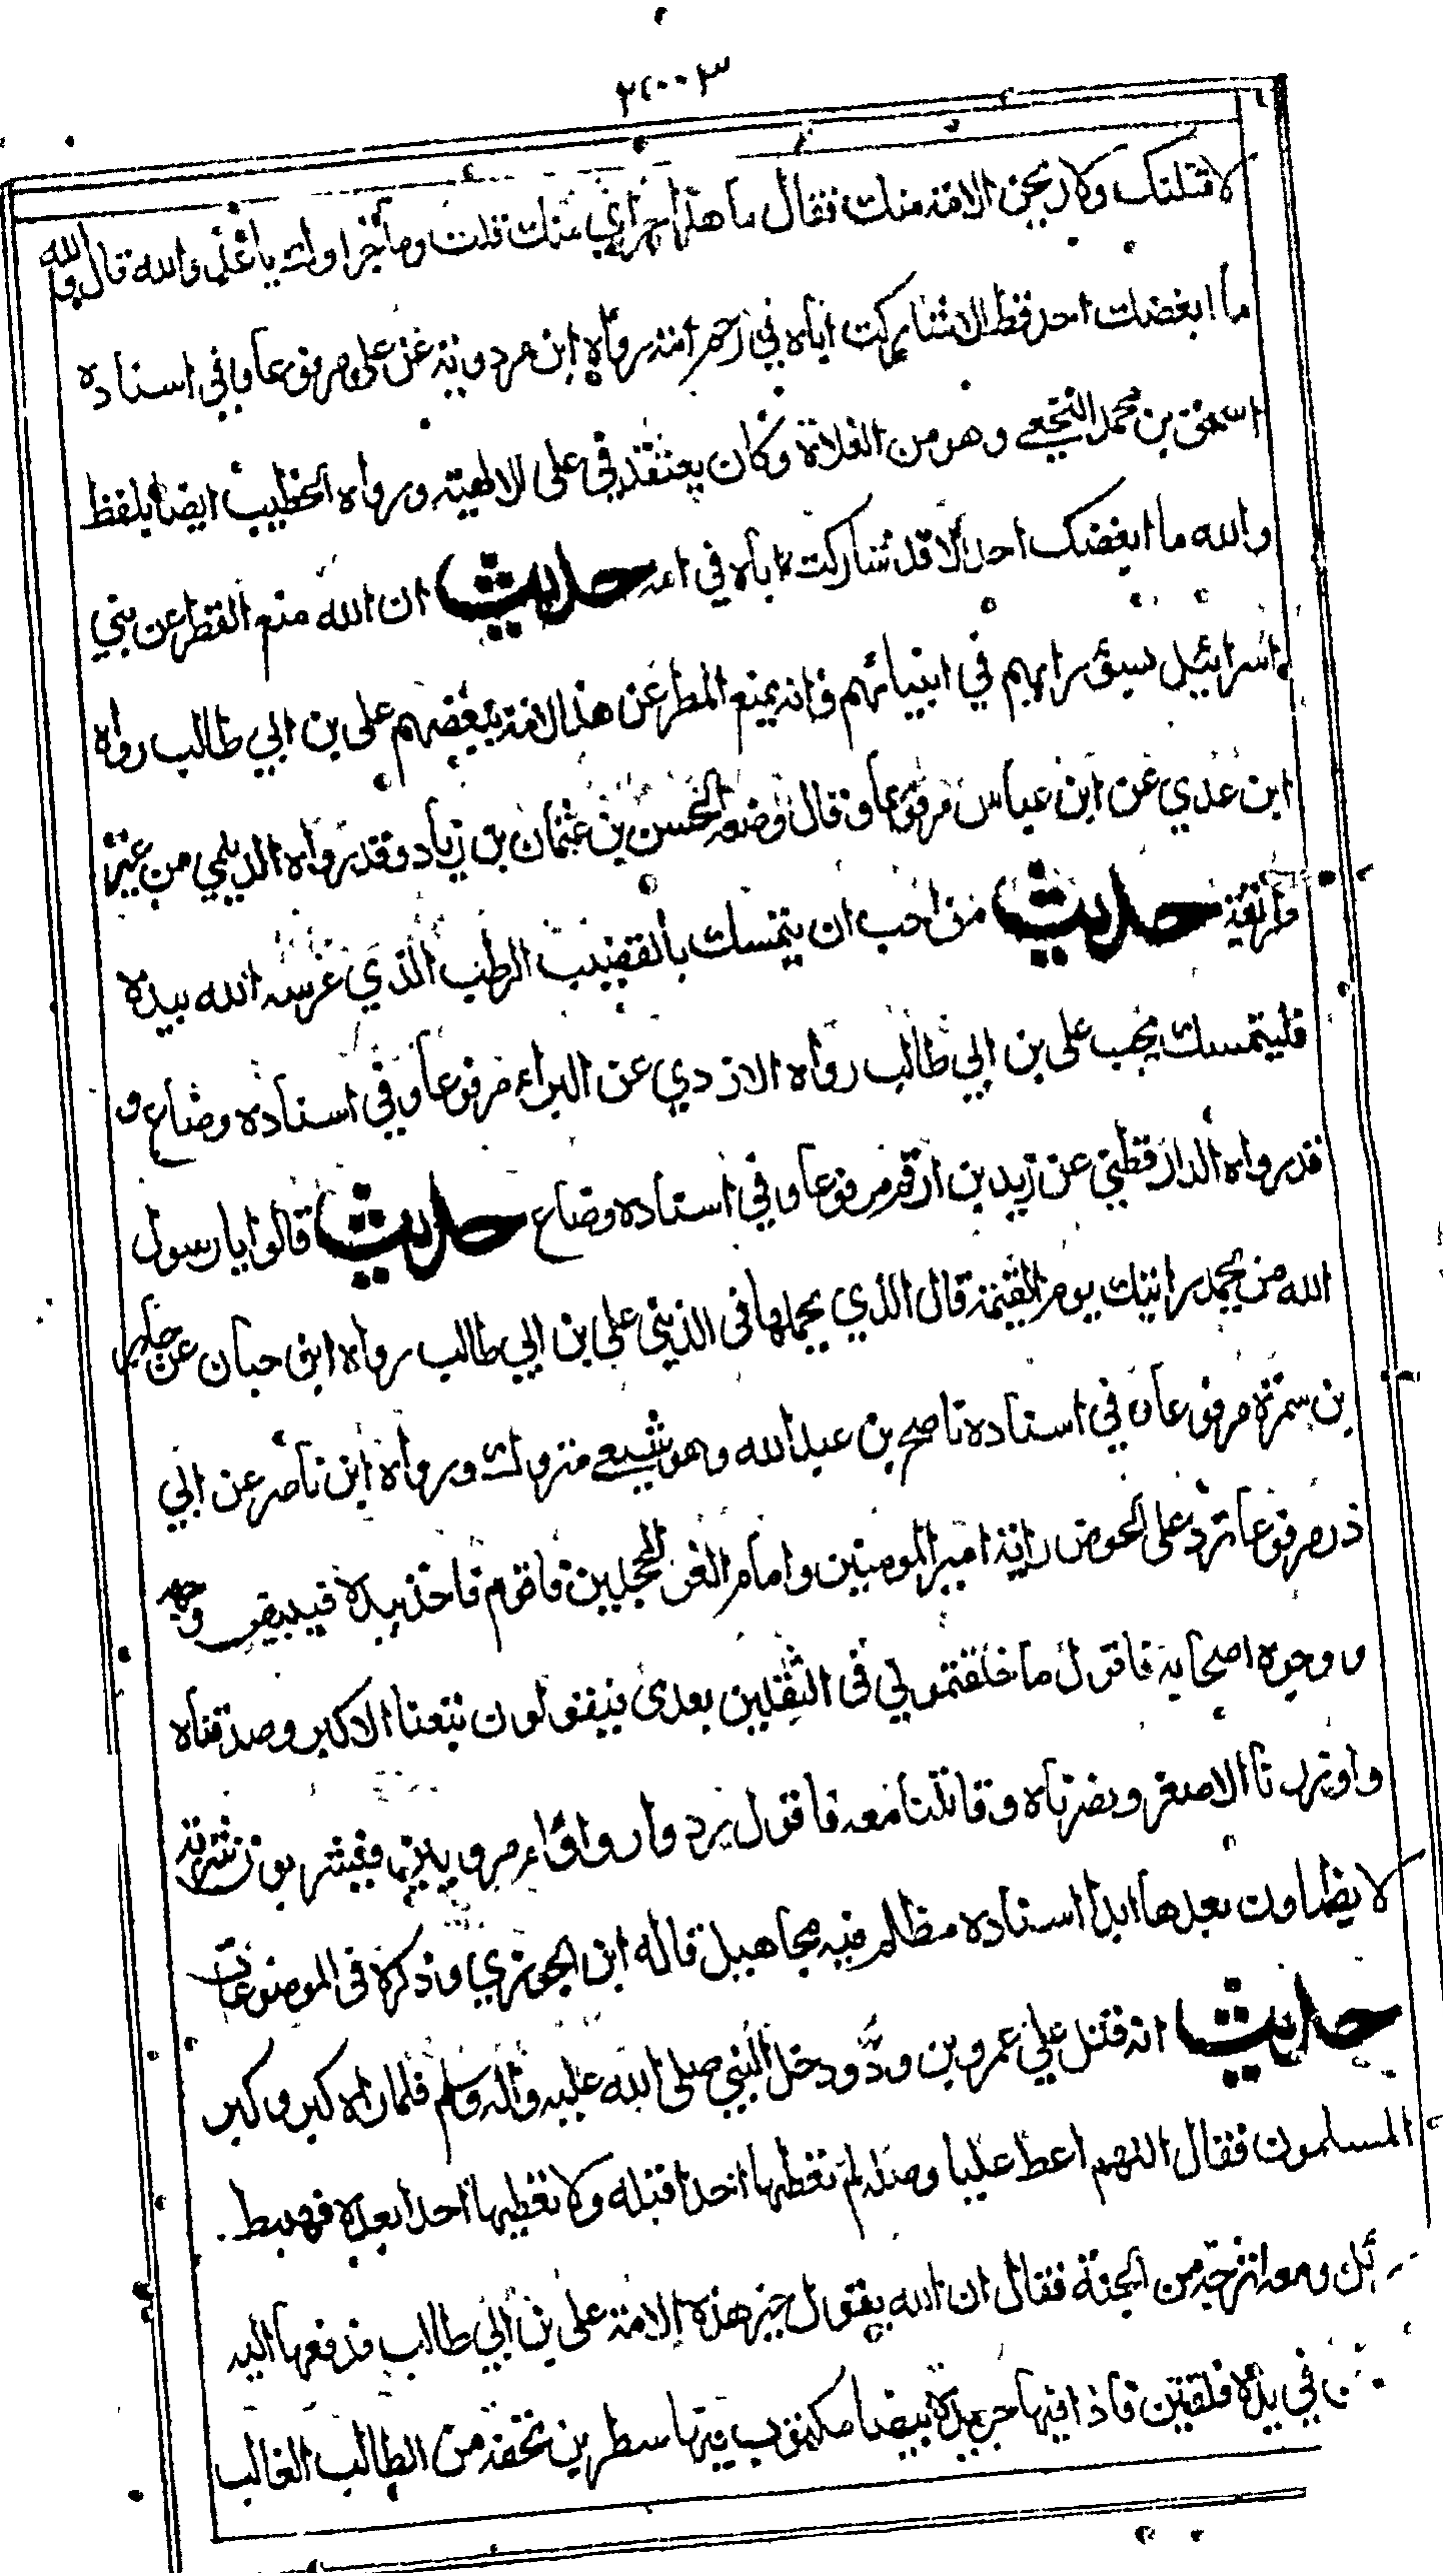 ٢٠٠٣
لاقتلنك ولاريحن الامة منك فقال ما هذا جزاي منك قلت وما جزاوك يا عدو الله قال والله
ما ابغضك احد قط الا شاركت اباه في رحم امه رواه ابن مردويه عن علي مرفوعا وفي اسناده
اسحق بن محمد النخعي وهو من الغلاة وكان يعتقد في علي الالهية ورواه الخطيب ايضا بلفظ
والله ما ابغضك احد الا قد شاركت اباه في امه حديث ان الله منع القطر عن بني
اسرائيل بسوء رايهم في انبيائهم وانه يمنع المطر عن هذه الامة ببغضهم علي بن ابي طالب رواه
ابن عدي عن ابن عباس مرفوعا وقال وضعه الحسن بن عثمان بن زياد وقد رواه الديلمي من غير
طريقه حديث من احب ان يتمسك بالقضيب الرطب الذي غرسه الله بيده
فليتمسك بحب علي بن ابي طالب رواه الازدي عن البراء مرفوعا وفي اسناده وضاع و
قد رواه الدارقطني عن زيد بن ارقم مرفوعا وفي اسناده وضاع حديث قالوا يا رسول
الله من يحمل رايتك يوم القيمة قال الذي يحملها في الدنيا علي بن ابي طالب رواه ابن حبان عن جابر
بن سمرة مرفوعا وفي اسناده ناصح بن عبد الله وهو شيعي متروك ورواه ابن ناصر عن ابي
ذر مرفوعا ترد على الحوض راية امير المومنين وامام الغر المحجلين فاقوم فاخذ بيده فيبيض وجهه
ووجوه اصحابه فاقول ما خلفتموني في الثقلين بعدي فيقولون تبعنا الاكبر وصدقناه
واوزرنا الاصغر ونصرناه وقاتلنا معه فاقول ردوا رواء مرويين فيشربون شربة
لا يظماون بعدها ابدا اسناده مظلم فيه مجاهيل قاله ابن الجوزي وذكره في الموضوعات
حديث انه قتل علي عمرو بن ود ودخل النبي صلى الله عليه واله وسلم فلما راه كبر وكبر
المسلمون فقال اللهم اعط عليا فضيلة لم تعطها احدا قبله ولا تعطيها احدا بعده فهبط
ئيل ومعه اترجة من الجنة فقال ان الله يقول حيز هذه الامة علي بن ابي طالب فدفعها اليه
في يده فلقتين فاذا فيها جريدة بيضا مكتوب فيها سطرين تحفة من الطالب الغالب